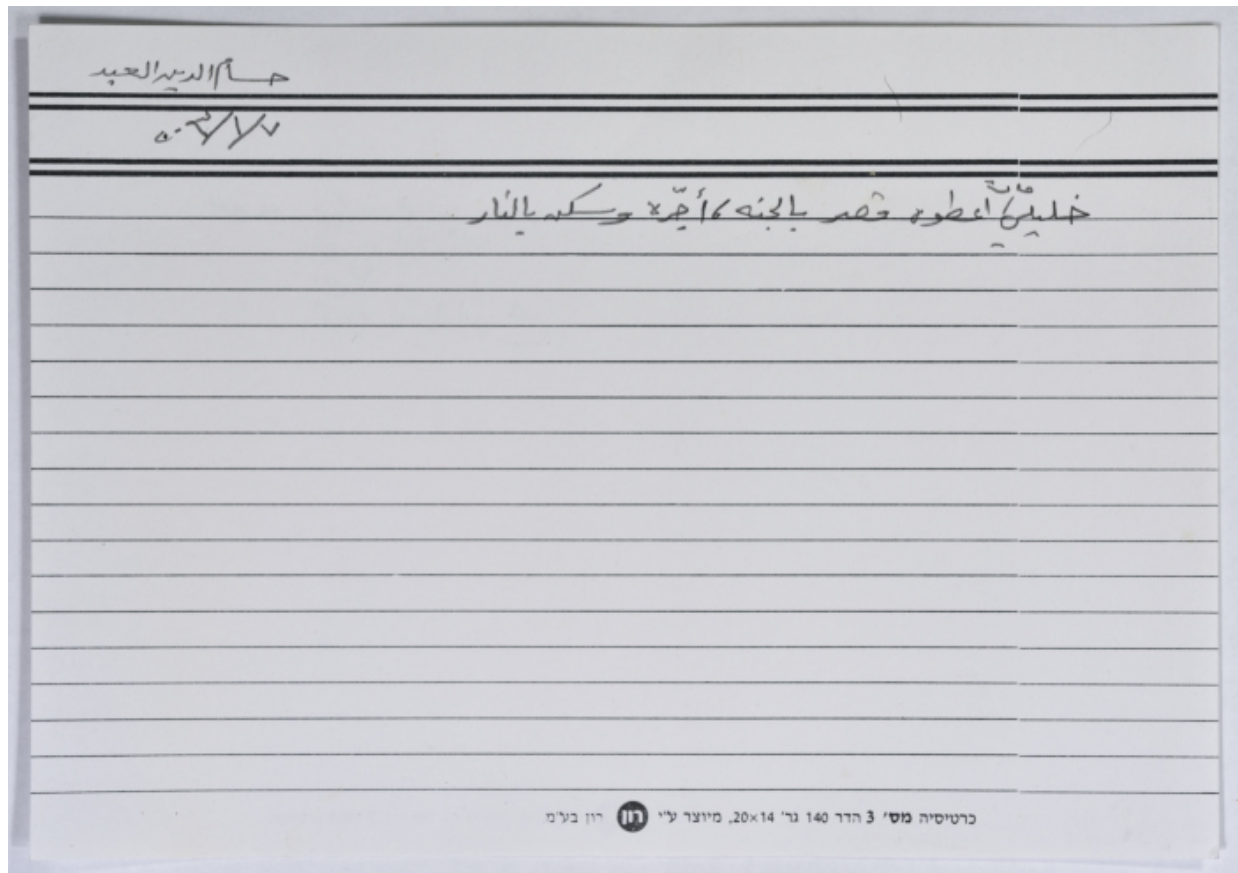 حسام الدين العبد
خليلي مات أعطوه قصر بالجنه، أجّره وسكن بالنار
כרטיסיה מס' 3 הדר 140 גר' 20×14, מיוצר ע"י רון רון בע"מ